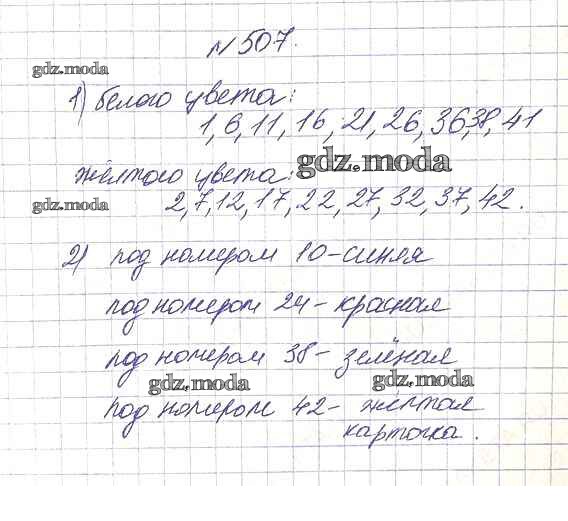 № 507.
gdz.moda
1) белого цвета:
1, 6, 11, 16, 21, 26, 36, 38, 41
жёлтого цвета: gdz.moda
gdz.moda 2, 7, 12, 17, 22, 27, 32, 37, 42.
2) под номером 10 - синяя
под номером 24 - красная
под номером 38 - зелёная
gdz.moda gdz.moda
под номером 42 - жёлтая
карточка.